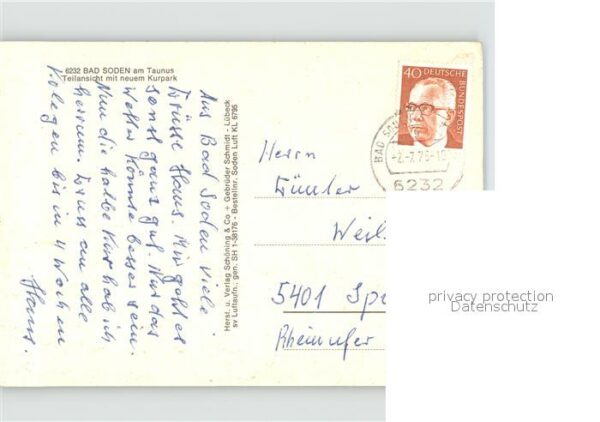 6232 BAD SODEN am Taunus
Teilansicht mit neuem Kurpark
Aus Bad Soden viele
Grüsse Hans. Mir geht es
sonst ganz gut. Nur das
Wetter könnte besser sein.
Nun die halbe Kur hab ich
herum. Gruss an alle
Kolegen bis in 4 Wochen
Hans.
Herst. u. Verlag Schöning & Co + Gebrüder Schmidt - Lübeck
sv Luftaufn., gen. SH 1-38176 - Bestellnr. Soden Luft KL 6795
40 DEUTSCHE
BUNDESPOST
BAD SODEN
6232
Herrn
Günter
Weil
5401 Sp
Rheinufer
privacy protection
Datenschutz